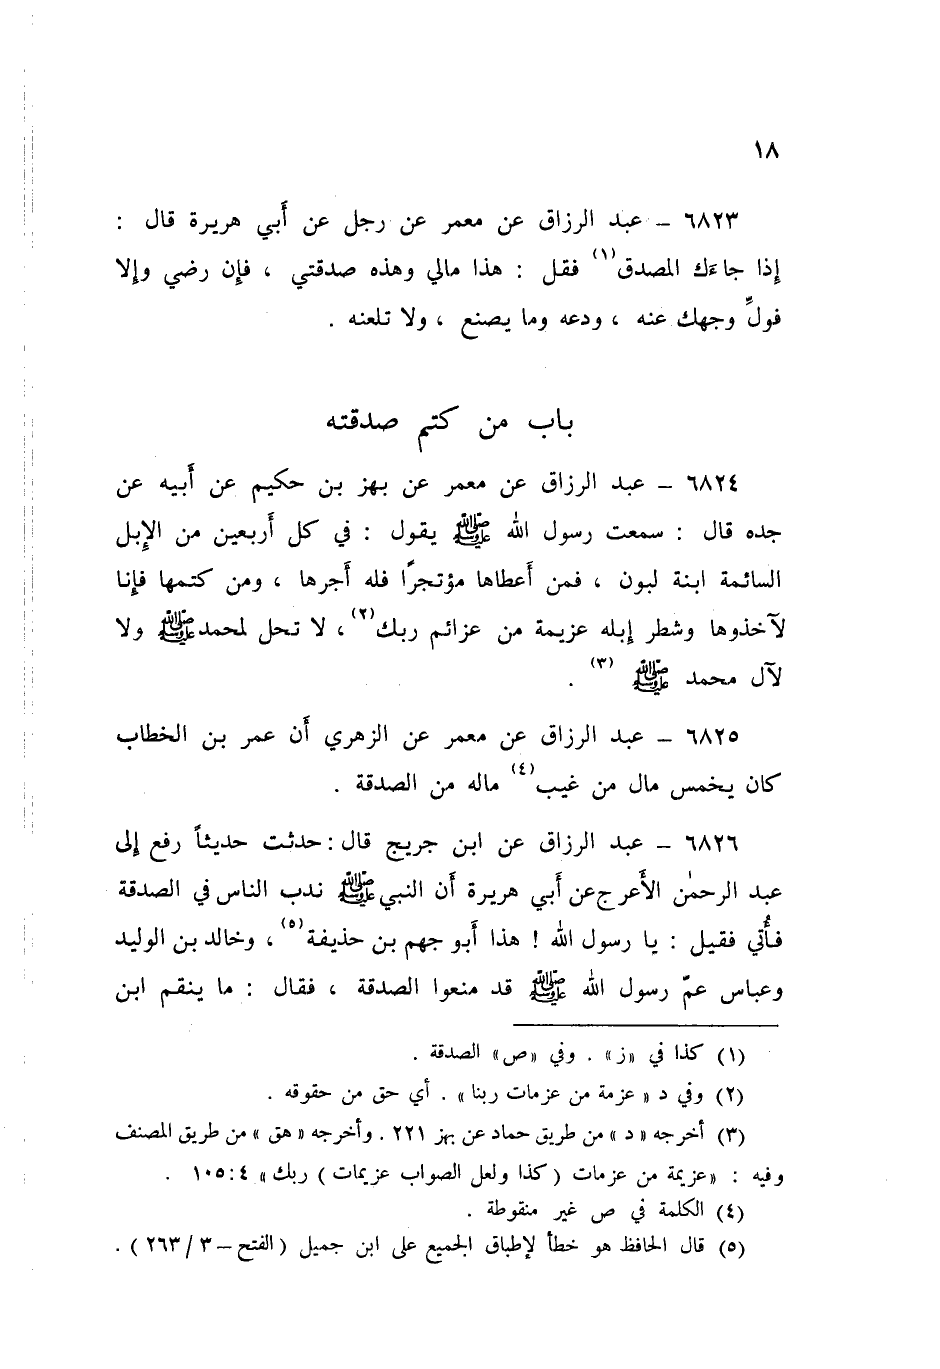 ١٨
٦٨٢٣ – عبد الرزاق عن معمر عن رجل عن أَبي هريرة قال :
إِذا جاءَك المصدق(١) فقل : هذا مالي وهذه صدقتي ، فإن رضي وإلا
فولِّ وجهك عنه ، ودعه وما يصنع ، ولا تلعنه .
باب من كتم صدقته
٦٨٢٤ – عبد الرزاق عن معمر عن بهز بن حكيم عن أَبيه عن
جده قال : سمعت رسول الله ﷺ يقول : في كل أَربعين من الإِبل
السائمة ابنة لبون ، فمن أَعطاها مؤتجرًا فله أَجرها ، ومن كتمها فإنا
لآخذوها وشطر إِبله عزيمة من عزائم ربك(٢) ، لا تحل لمحمد ﷺ ولا
لآل محمد ﷺ (٣) .
٦٨٢٥ – عبد الرزاق عن معمر عن الزهري أَن عمر بن الخطاب
كان يخمس مال من غيب(٤) ماله من الصدقة .
٦٨٢٦ – عبد الرزاق عن ابن جريج قال : حدثت حديثاً رفع إِلى
عبد الرحمٰن الأَعرج عن أَبي هريرة أَن النبي ﷺ ندب الناس في الصدقة
فأُتي فقيل : يا رسول الله ! هذا أَبو جهم بن حذيفة(٥) ، وخالد بن الوليد
وعباس عمّ رسول الله ﷺ قد منعوا الصدقة ، فقال : ما ينقم ابن
(١) كذا في «ز» . وفي «ص» الصدقة .
(٢) وفي د « عزمة من عزمات ربنا » . أي حق من حقوقه .
(٣) أخرجه « د » من طريق حماد عن بهز ٢٢١ . وأخرجه « هق » من طريق المصنف
وفيه : «عزيمة من عزمات ( كذا ولعل الصواب عزيمات ) ربك » ٤ : ١٠٥ .
(٤) الكلمة في ص غير منقوطة .
(٥) قال الحافظ هو خطأ لإطباق الجميع على ابن جميل ( الفتح – ٣ / ٢٦٣ ) .